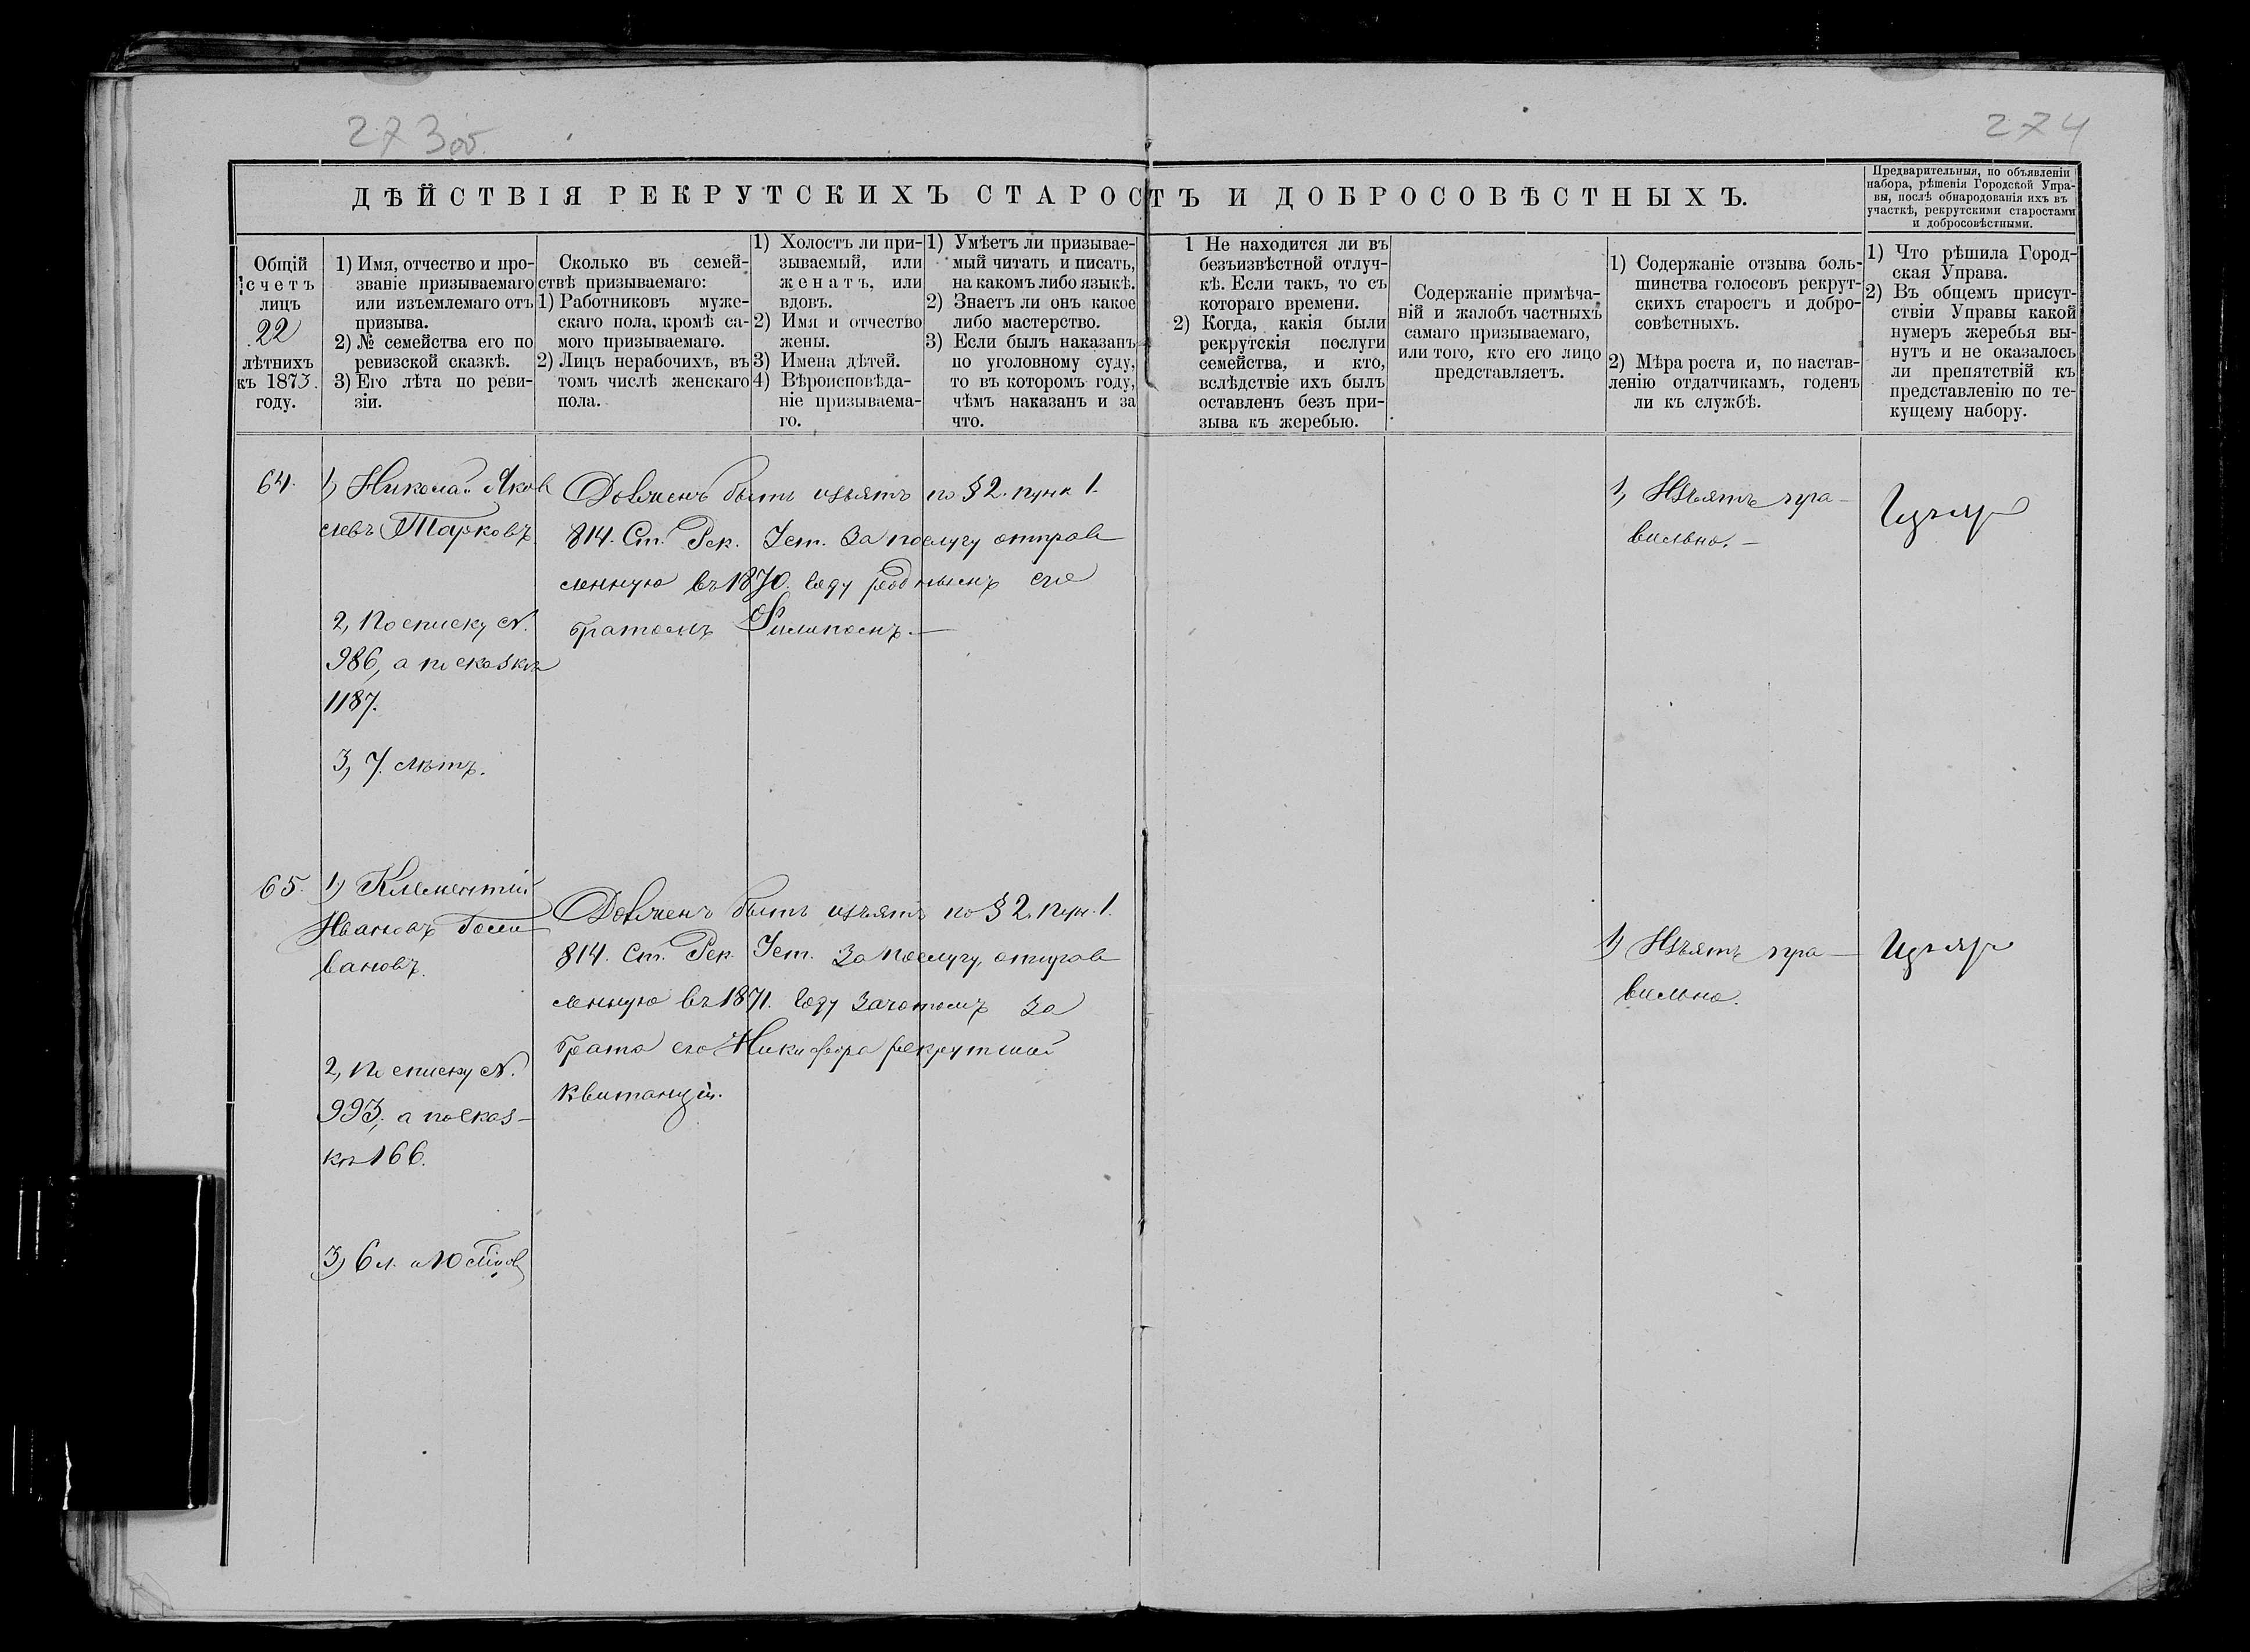 273 об.
274
ДѢЙСТВІЯ РЕКРУТСКИХЪ СТАРОСТЪ И ДОБРОСОВѢСТНЫХЪ.
Предварительныя, по объявленіи
набора, рѣшенія Городской Упра-
вы, послѣ обнародованія ихъ въ
участкѣ, рекрутскими старостами
и добросовѣстными.
Общій
счетъ
лицъ
22
лѣтнихъ
къ 1873.
году.
1) Имя, отчество и про-
званіе призываемаго
или изъемлемаго отъ
призыва.
2) № семейства его по
ревизской сказкѣ.
3) Его лѣта по реви-
зіи.
Сколько въ семей-
ствѣ призываемаго:
1) Работниковъ муже-
скаго пола, кромѣ са-
мого призываемаго.
2) Лицъ нерабочихъ, въ
томъ числѣ женскаго
пола.
1) Холостъ ли при-
зываемый, или
женатъ, или
вдовъ.
2) Имя и отчество
жены.
3) Имена дѣтей.
4) Вѣроисповѣда-
ніе призываема-
го.
1) Умѣетъ ли призывае-
мый читать и писать,
на какомъ либо языкѣ.
2) Знаетъ ли онъ какое
либо мастерство.
3) Если былъ наказанъ
по уголовному суду,
то въ которомъ году,
чѣмъ наказанъ и за
что.
1 Не находится ли въ
безъизвѣстной отлуч-
кѣ. Если такъ, то съ
котораго времени.
2) Когда, какія были
рекрутскія послуги
семейства, и кто,
вслѣдствіе ихъ былъ
оставленъ безъ при-
зыва къ жеребью.
Содержаніе примѣча-
ній и жалобъ частныхъ
самаго призываемаго,
или того, кто его лицо
представляетъ.
1) Содержаніе отзыва боль-
шинства голосовъ рекрут-
скихъ старостъ и добро-
совѣстныхъ.
2) Мѣра роста и, по настав-
ленію отдатчикамъ, годенъ
ли къ службѣ.
1) Что рѣшила Город-
ская Управа.
2) Въ общемъ присут-
ствіи Управы какой
нумеръ жеребья вы-
нутъ и не оказалось
ли препятствій къ
представленію по те-
кущему набору.
64.
1) Николай Яков
левъ Тарковъ.
2, По списку №.
986, а по сказкѣ
1187.
3, 7. лѣтъ.
Долженъ быть изъятъ по § 2. пунк 1.
814. Ст. Рек. Уст. За послугу отправ
ленную въ 1870. году роднымъ его
братомъ Филипомъ.—
1, Изъятъ пра—
вильно.—
Изъят
65.
1) Клементій
Ивановъ
вановъ.
2, По списку №.
993, а по сказ—
кѣ 166.
3) 6 л. и 10 мѣсяцов
Долженъ быть изъятъ по § 2. пун. 1.
814. Ст. Рек. Уст. За послугу, отправ
ленную въ 1871. году зачотомъ за
брата его Никифора рекрутской
квитанціи.
1) Изъятъ пра—
вильно.
Изъят